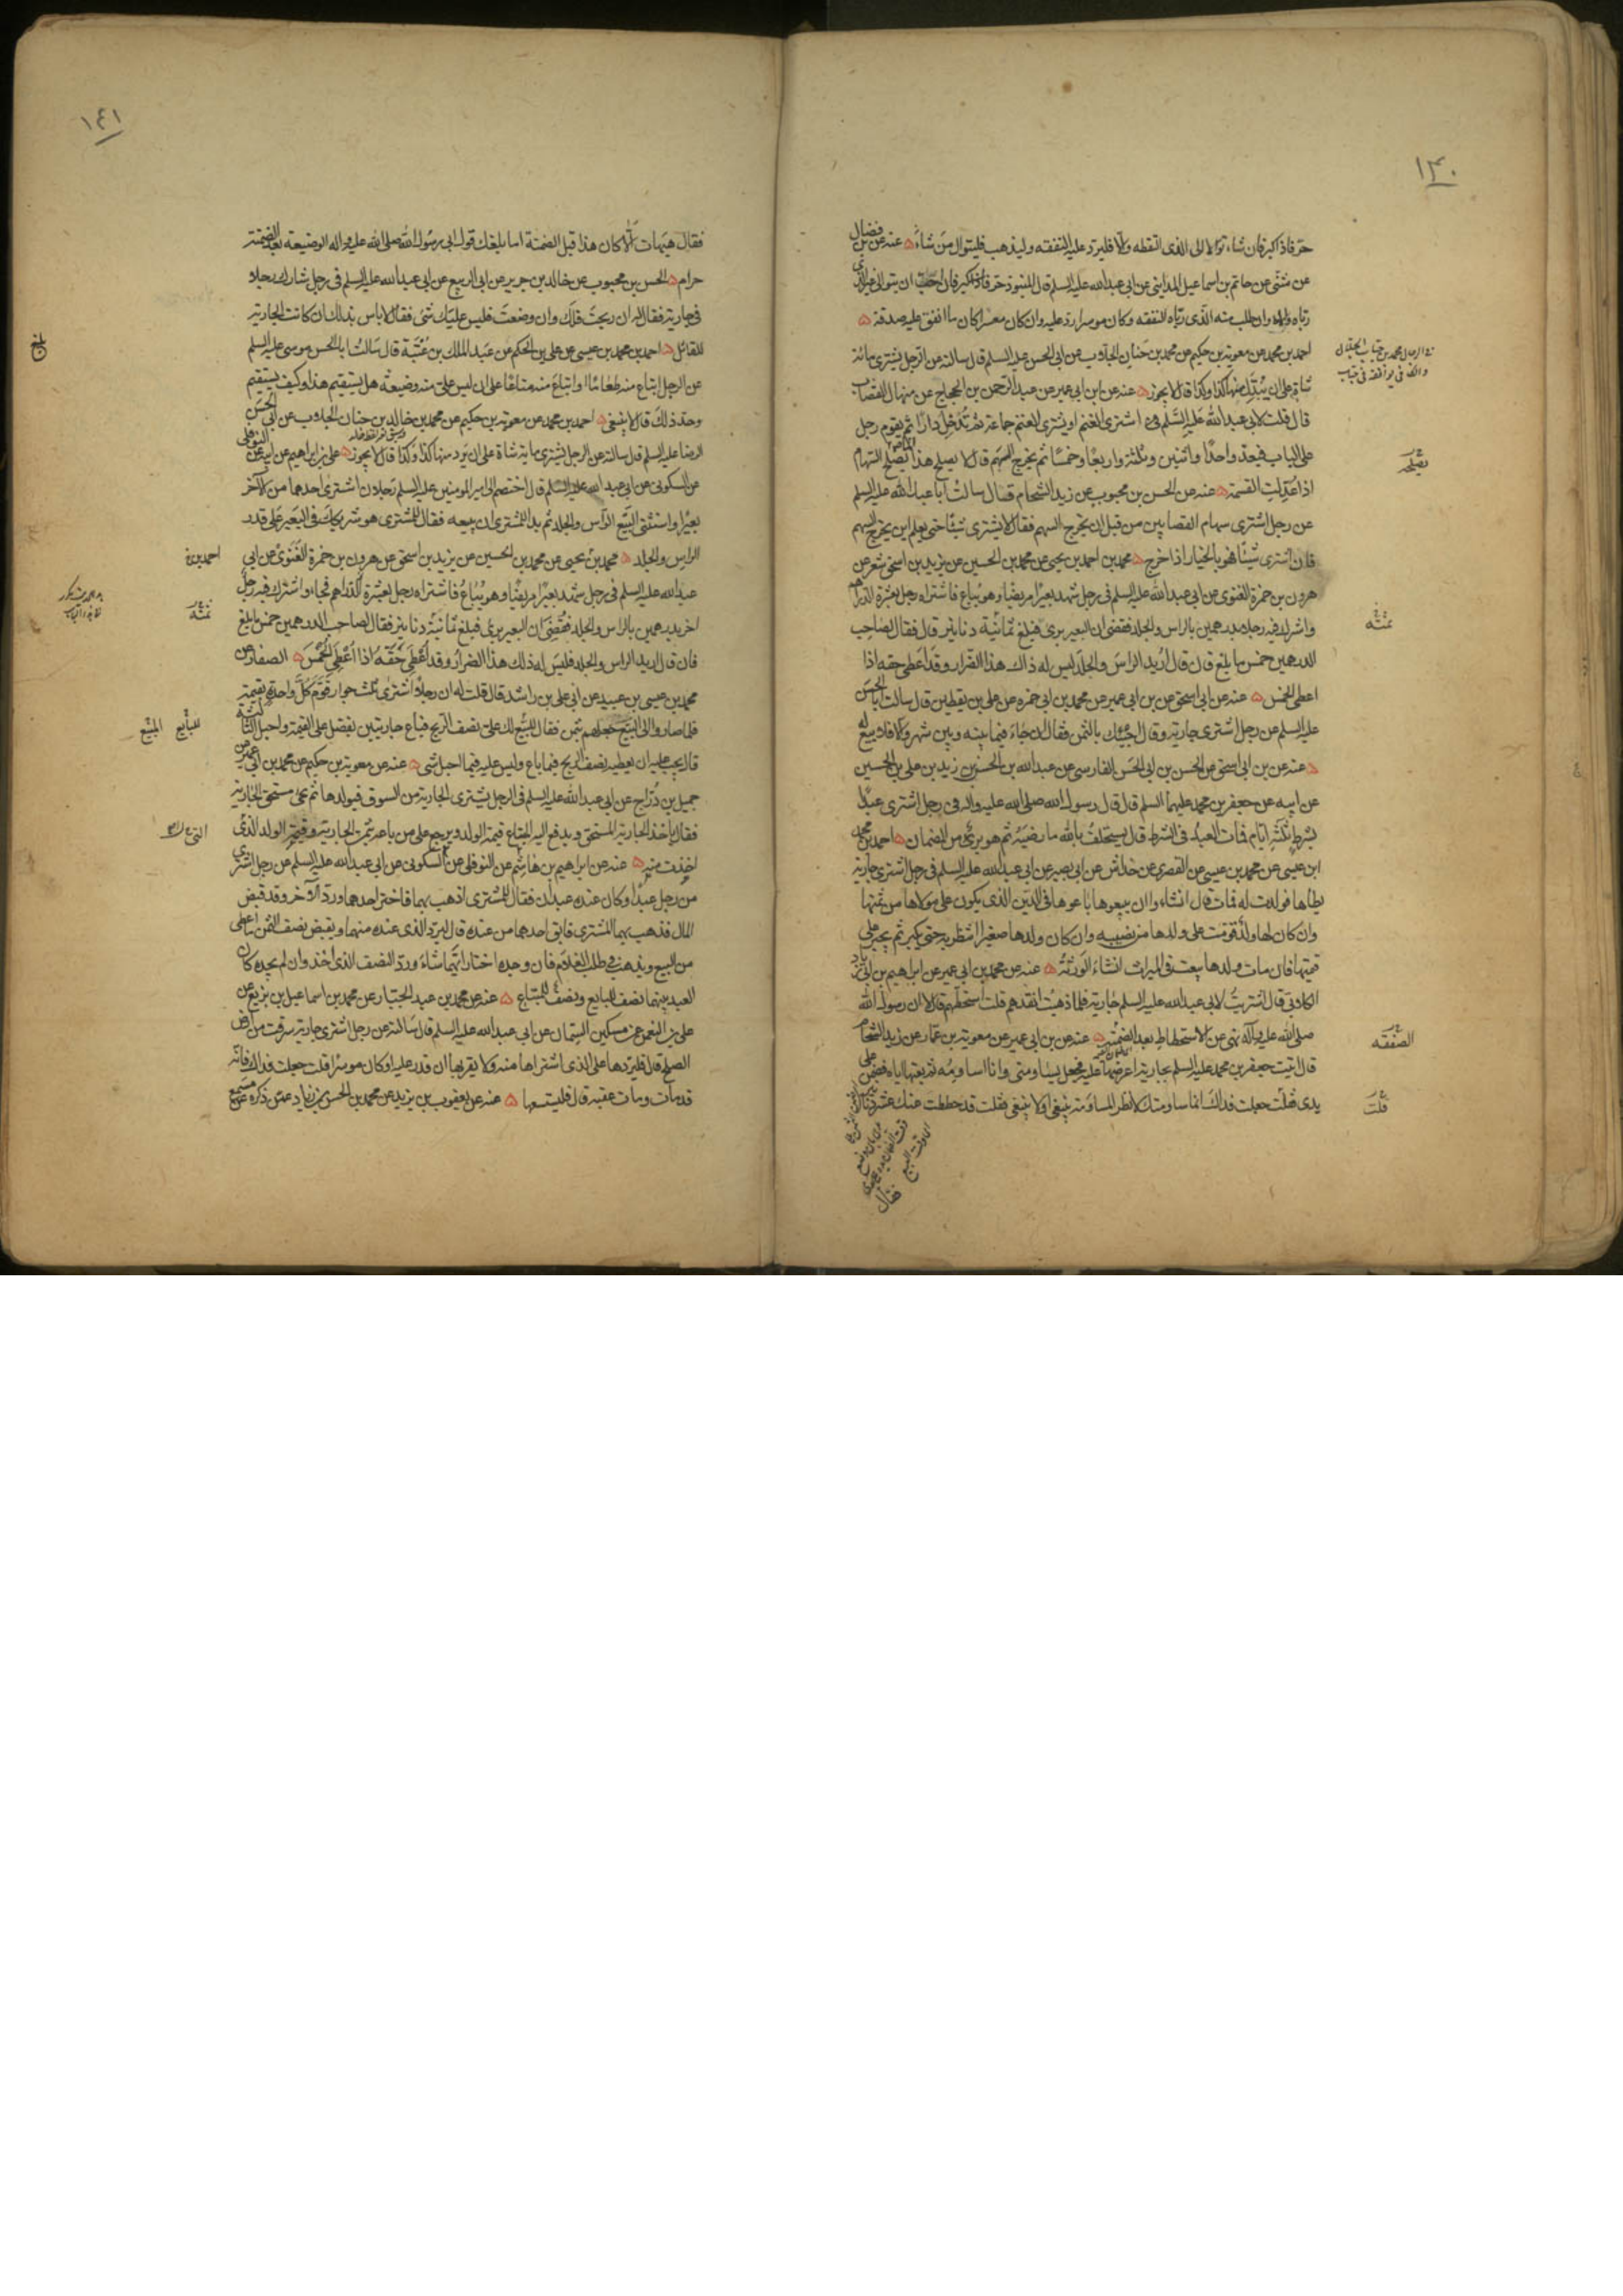 ١٣٠
حر فاذا كبر فان شاء توالا الى الذى التقطه والا فليرد عليه النفقه وليذهب فليتوال من شاء ۵ عنه عن بن فضال
عن مثنى عن حاتم بن اسماعيل المداينى عن ابى عبد الله عليه السلم قال المنبوذ حر فاذا كبر فان احب ان يتوالى غير الذى
رباه والاه وان طلب منه الذى رباه النفقه وكان موسرا رد عليه وان كان معسرا كان ما انفق عليه صدقة ۵
احمد بن محمد عن معوية بن حكيم عن محمد بن حنان الجلاب عن ابى الحسن عليه السلم قال سالته عن الرجل يشترى مائة
شاة على ان يبدل منها كذا وكذا قال لا يجوز ۵ عنه عن ابن ابى عمير عن عبد الرحمن بن الحجاج عن منهال القصاب
قال قلت لابى عبد الله عليه السلم اشترى الغنم او يشترى الغنم جماعة ثم تدخل دارا ثم يقوم رجل
على الباب فيعد واحدا واثنين وثلثة واربعا وخمسا ثم يخرج السهم قال لا يصلح هذا انما يصلح السهام
اذا عدلت القسمة ۵ عنه عن الحسن بن محبوب عن زيد الشحام قال سالت ابا عبد الله عليه السلم
عن رجل اشترى سهام القصابين من قبل ان يخرج السهم فقال لا يشترى شيئا حتى يعلم اين يخرج السهم
فان اشترى شيئا فهو بالخيار اذا خرج ۵ محمد بن احمد بن يحيى عن محمد بن الحسين عن يزيد بن اسحق شعر عن
هرون بن حمزة الغنوى عن ابى عبد الله عليه السلم فى رجل شهد بعيرا مريضا وهو يباع فاشتراه رجل بعشرة الدراهم
واشرك فيه رجلا بدرهمين بالراس والجلد فقضى ان البعير برئ فبلغ ثمانية دنانير قال فقال لصاحب
الدرهمين خمس ما بلغ فان قال اريد الراس والجلد ليس له ذاك هذا الضرار وقد اعطى حقه اذا
اعطى الخمس ۵ عنه عن ابى اسحق عن بن ابى عمير عن محمد بن ابى حمزه عن على بن يقطين قال سالت ابا الحسن
عليه السلم عن رجل اشترى جارية وقال اجيئك بالثمن فقال ان جاء فيما بينه وبين شهر والا فلا بيع له
۵ عنه عن بن ابى اسحق عن الحسن بن ابى الحسن الفارسى عن عبد الله بن الحسن بن زيد بن على بن الحسين
عن ابيه عن جعفر بن محمد عليهما السلم قال قال رسول الله صلى الله عليه واله فى رجل اشترى عبدا
بشرط ثلثة ايام فمات العبد فى الشرط قال يستحلف بالله ما رضيه ثم هو برئ من الضمان ۵ احمد بن محمد
ابن عيسى عن محمد بن عيسى عن القصرى عن خداش عن ابى بصير عن ابى عبد الله عليه السلم فى رجل اشترى جارية
يطأها فولدت له فمات قال ان شاءوا ان يبيعوها باعوها فى الدين الذى يكون على مولاها من ثمنها
وان كان لها ولد قومت على ولدها من نصيبه وان كان ولدها صغيرا انتظر به حتى يكبر ثم يجبر على
قيمتها فان مات ولدها بيعت فى الميراث ان شاء الورثة ۵ عنه عن محمد بن ابى عمير عن ابراهيم بن ابى زياد
الكلابى قال اشتريت لابى عبد الله عليه السلم جارية فلما ذهبت انقدهم قلت استحطهم قال لا ان رسول الله
صلى الله عليه واله نهى عن الاستحطاط بعد الضمنة ۵ عنه عن بن ابى عمير عن معوية بن عمار عن زيد الشحام
قال اتيت جعفر بن محمد عليه السلم بجارية اعرضها عليه فجعل يساومنى وانا اساومه ثم بعتها اياه فضمن على
يدى فقلت جعلت فداك انما ساومتك لانظر المساومة ينبغى او لا ينبغى فقلت قد حططت عنك عشرة دنانير
فقال
يصلح
ثمنه
الصفقه
قلت
١٤١
فقال هيهات الا كان هذا قبل الضمنة اما بلغك قول ابى رسول الله صلى الله عليه واله الوضيعة بعد الضمنة
حرام ۵ الحسن بن محبوب عن خالد بن جرير عن ابى الربيع عن ابى عبد الله عليه السلم فى رجل شارك رجلا
فى جارية فقال له ان ربحت فلك وان وضعت فليس عليك شئ فقال لا باس بذلك ان كانت الجارية
للقائل ۵ احمد بن محمد بن عيسى عن على بن الحكم عن عبد الملك بن عتبة قال سالت ابا الحسن موسى عليه السلم
عن الرجل ابتاع منه طعاما او ابتاع منه متاعا على ان ليس على منه وضيعة هل يستقيم هذا وكيف يستقيم
وحد ذلك قال لا ينبغى ۵ احمد بن محمد عن معوية بن حكيم عن محمد بن خالد بن حنان الجلاب عن ابى الحسن
الرضا عليه السلم قال سالته عن الرجل يشترى ماية شاة على ان يرد منها كذا وكذا قال لا يجوز ۵ على بن ابراهيم عن ابيه عن النوفلى
عن السكونى عن ابى عبد الله عليه السلم قال اختصم الى امير المومنين عليه السلم رجلان اشترى احدهما من الاخر
بعيرا واستثنى البيع الراس والجلد ثم بدا للمشترى ان يبيعه فقال للمشترى هو شريكك فى البعير على قدر
الراس والجلد ۵ محمد بن يحيى عن محمد بن الحسين عن يزيد بن اسحق عن هرون بن حمزة الغنوى عن ابى
عبد الله عليه السلم فى رجل شهد بعيرا مريضا وهو يباع فاشتراه رجل بعشرة الدراهم فجاء واشترك فيه رجل
اخر بدرهمين بالراس والجلد فقضى ان البعير برئ فبلغ ثمانية دنانير فقال لصاحب الدرهمين خمس ما بلغ
فان قال اريد الراس والجلد فليس له ذلك هذا الضرار وقد اعطى حقه اذا اعطى الخمس ۵ الصفار عن
محمد بن عيسى بن عبيد عن ابى على بن راشد قال قلت له ان رجلا اشترى ثلث جوار قوم كل واحدة بقيمة
فلما صاروا الى البيع جعلهم بثمن فقال للبيع لك على نصف الربح فباع جاريتين بفضل على القيمة واحبل الثالثة
قال يجب عليه ان يعطيه نصف الربح فيما باع وليس عليه فيما احبل شى ۵ عنه عن معوية بن حكيم عن محمد بن ابى عمير عن
جميل بن دراج عن ابى عبد الله عليه السلم فى الرجل يشترى الجارية من السوق فيولدها ثم يجئ مستحق الجارية
فقال ياخذ الجارية المستحق ويدفع اليه المبتاع قيمة الولد ويرجع على من باعه بثمن الجارية وقيمة الولد الذى
اخذت منه ۵ عنه عن ابراهيم بن هاشم عن النوفلى عن السكونى عن ابى عبد الله عليه السلم عن رجل اشترى
من رجل عبدا وكان عنده عبدان فقال للمشترى اذهب بهما فاختر احدهما ورد الاخر وقد قبض
المال فذهب بهما المشترى فابق احدهما من عنده قال ليرد الذى عنده منهما ويقبض نصف الثمن ما اعطى
من البيع ويذهب فى طلب الغلام فان وجده اختار ايهما شاء ورد النصف الذى اخذ وان لم يجده كان
العبد بينهما نصف للبايع ونصف للمبتاع ۵ عنه عن محمد بن عبد الجبار عن محمد بن اسماعيل بن بزيع عن
على بن النعمن عن مسكين السمان عن ابى عبد الله عليه السلم قال سالته عن رجل اشترى جارية سرقت من ارض
الصلح قال فليردها على الذى اشتراها منه ولا يقربها ان قدر عليه او كان موسرا قلت جعلت فداك فانه
قد مات ومات عقبه قال فليستسعها ۵ عنه عن يعقوب بن يزيد عن محمد بن الحسن بن زياد عمن ذكره عن
بلغ
احمد بن
ثمنه
للبايع المبيع
التى